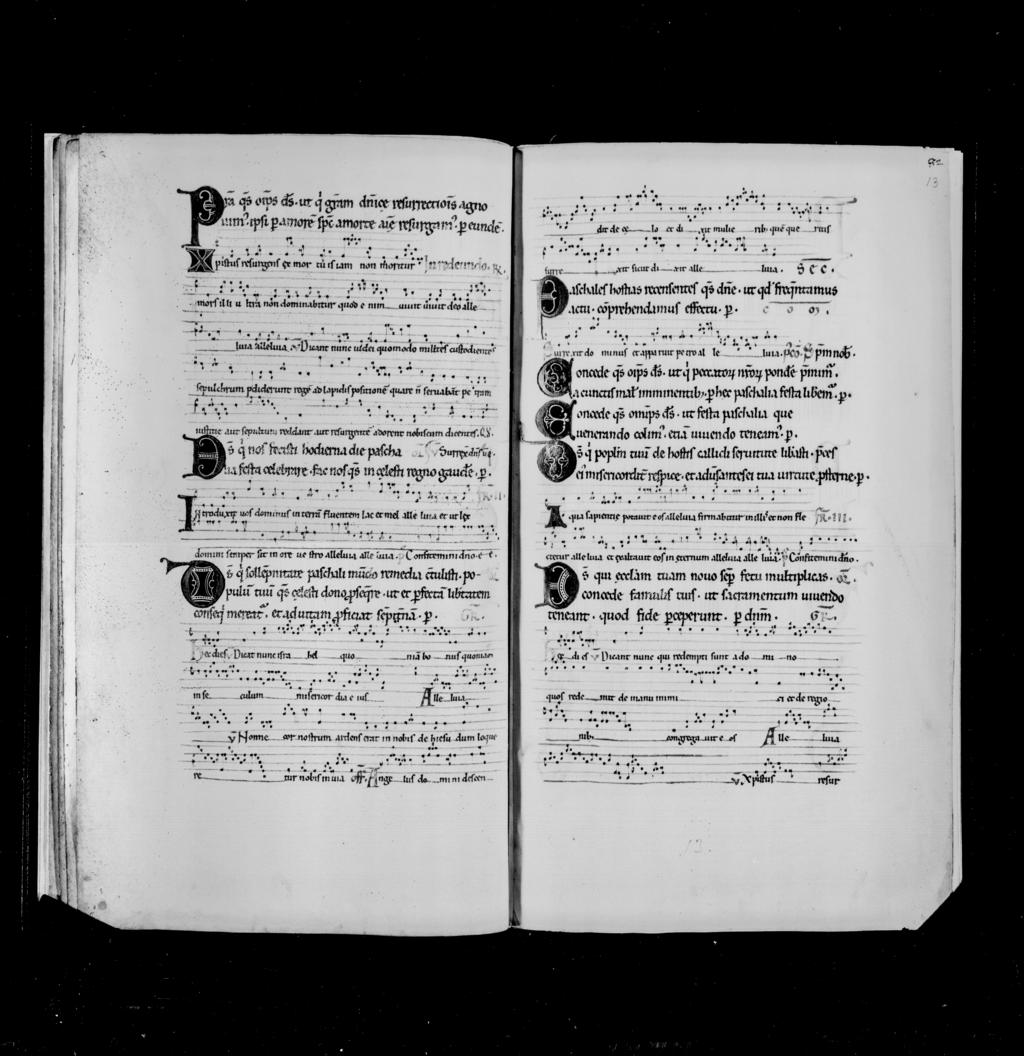 Pra qs omps ds. ut q gram dnice resurrectiois agno
uim. ipsi p amore spc amorte aie resurgam. p eunde.
Xpistus resurgens ex mor tu is iam non moritur In redeundo. R.
mors il li u ltra non dominabitur quod e nim uiuit uiuit deo alle
luia alleluia. V Dicant nunc iudei quomodo milites custodientes
sepulchrum pdiderunt rege ad lapidis positione quare n seruabat pe tram
iustitie aut sepultum reddant aut resurgente adorent nobiscum dicentes. QS.
Ds q nos fecisti hodierna die pascha V Surrex dns uq
lia festa celebrare. fac nos qs in celesti regno gaude. p.
FR. II.
Introduxit uos dominus in terra fluentem lac et mel alle luia et ut lex
domini semper sit in ore ue stro alleluia alle luia. p Confitemini dno. e. e.
Ds q sollepnitate paschali mudo remedia ctulisti. po
pulu tuu qs celesti dono pseqre. ut et pfecta libtatem
conseq mereat. et ad uitam pficiat sepitna. p. GR.
Hec dies V Dicat nunc isra hel quo nia bo nus quoniam
in se culum misericor dia e ius Alle luia
V Nonne cor nostrum ardens erat in nobis de hiesu dum loque
re tur nobis in uia off. Ange lus do mini descen
13
dit de ce lo et di xit mulie rib. que que ritis
surre xit sicut di xit alle luia. SEC.
Paschales hostias recensentes qs dne. ut qd freqntamus
actu. coprehendamus effectu. p. com.
Surre xit do minus et appa ruit pe tro al le luia. pco. Spm nob.
Concede qs omps ds. ut q peccator nror ponde pmim.
a cunctis mal imminentib. p hec paschalia festa libem. p.
Concede qs omips ds. ut festa paschalia que
uenerando colim. etia uiuendo teneam. p.
Ds q poplm tuu de hostis callidi seruitute libasti. pces
ei misericordit respice. et adusantes ei tua uirtute psterne. p.
Aqua sapientie potauit e os alleluia firmabitur in illis et non fle FR. III.
ctetur alle luia et exaltauit eos in eternum alleluia alle luia. p Confitemini dno.
Ds qui ecclam tuam nouo sep fetu multiplicas.
concede famulis tuis. ut sacramentum uiuendo
teneant. quod fide pceperunt. p dnm. GR.
Hec di es V Dicant nunc qui redempti sunt a do mi no
quos rede mit de manu inimi ci et de regio
nib. congrega uit e os Alle luia
V Xpistus resur
13.